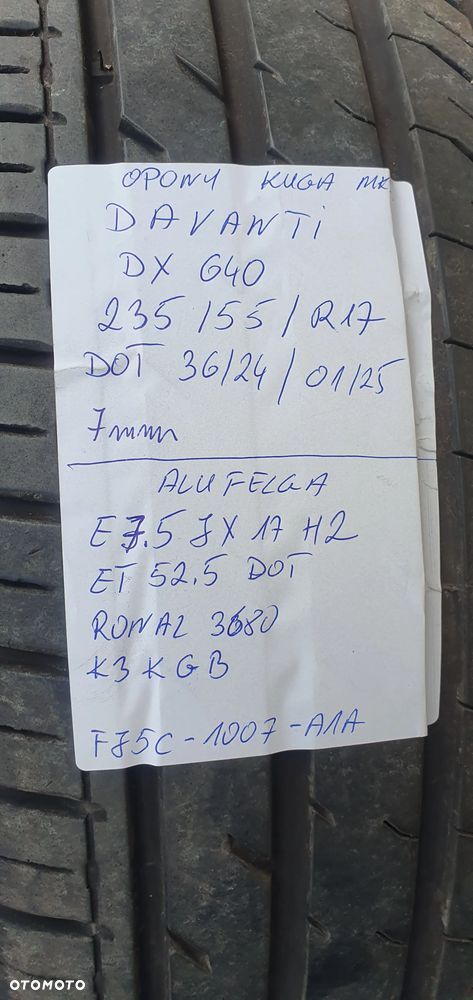 OPONY KUGA MK
DAVANTi
DX 640
235 /55 / R17
DOT 36/24 / 01/25
7mm
ALUFELGA
E 7.5 J X 17 H2
ET 52.5 DOT
RONAL 3680
K3KGB
FJ5C-1007-A1A
OTOMOTO